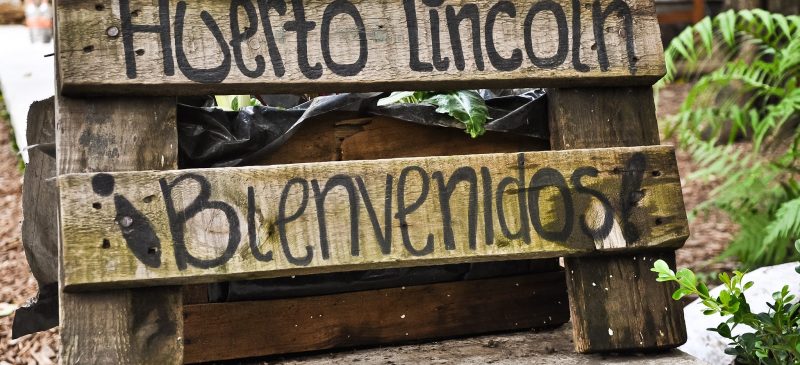 Huerto Lincoln
¡Bienvenidos!